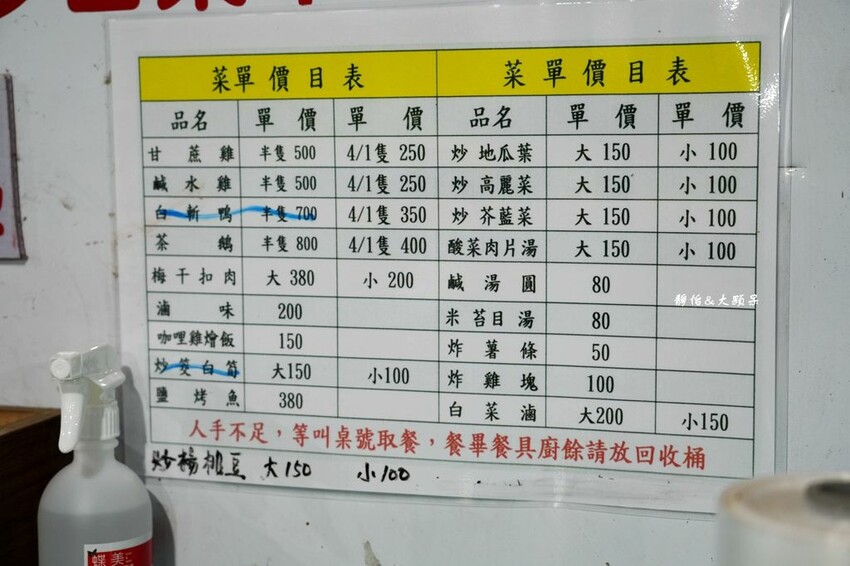 菜單價目表 菜單價目表
品名 單價 單價 品名 單價 單價
甘蔗雞 半隻500 4/1隻 250 炒地瓜葉 大 150 小 100
鹹水雞 半隻500 4/1隻 250 炒高麗菜 大 150 小 100
白斬鴨 半隻700 4/1隻 350 炒芥藍菜 大 150 小 100
茶鵝 半隻800 4/1隻 400 酸菜肉片湯 大 150 小 100
梅干扣肉 大 380 小 200 鹹湯圓 80
滷味 200 米苔目湯 80
咖哩雞燴飯 150 炸薯條 50
炒筊白筍 大150 小100 炸雞塊 100
鹽烤魚 380 白菜滷 大200 小150
人手不足，等叫桌號取餐，餐畢餐具廚餘請放回收桶
炒楊桃豆 大150 小100
靜怡&大顆呆
蝶美